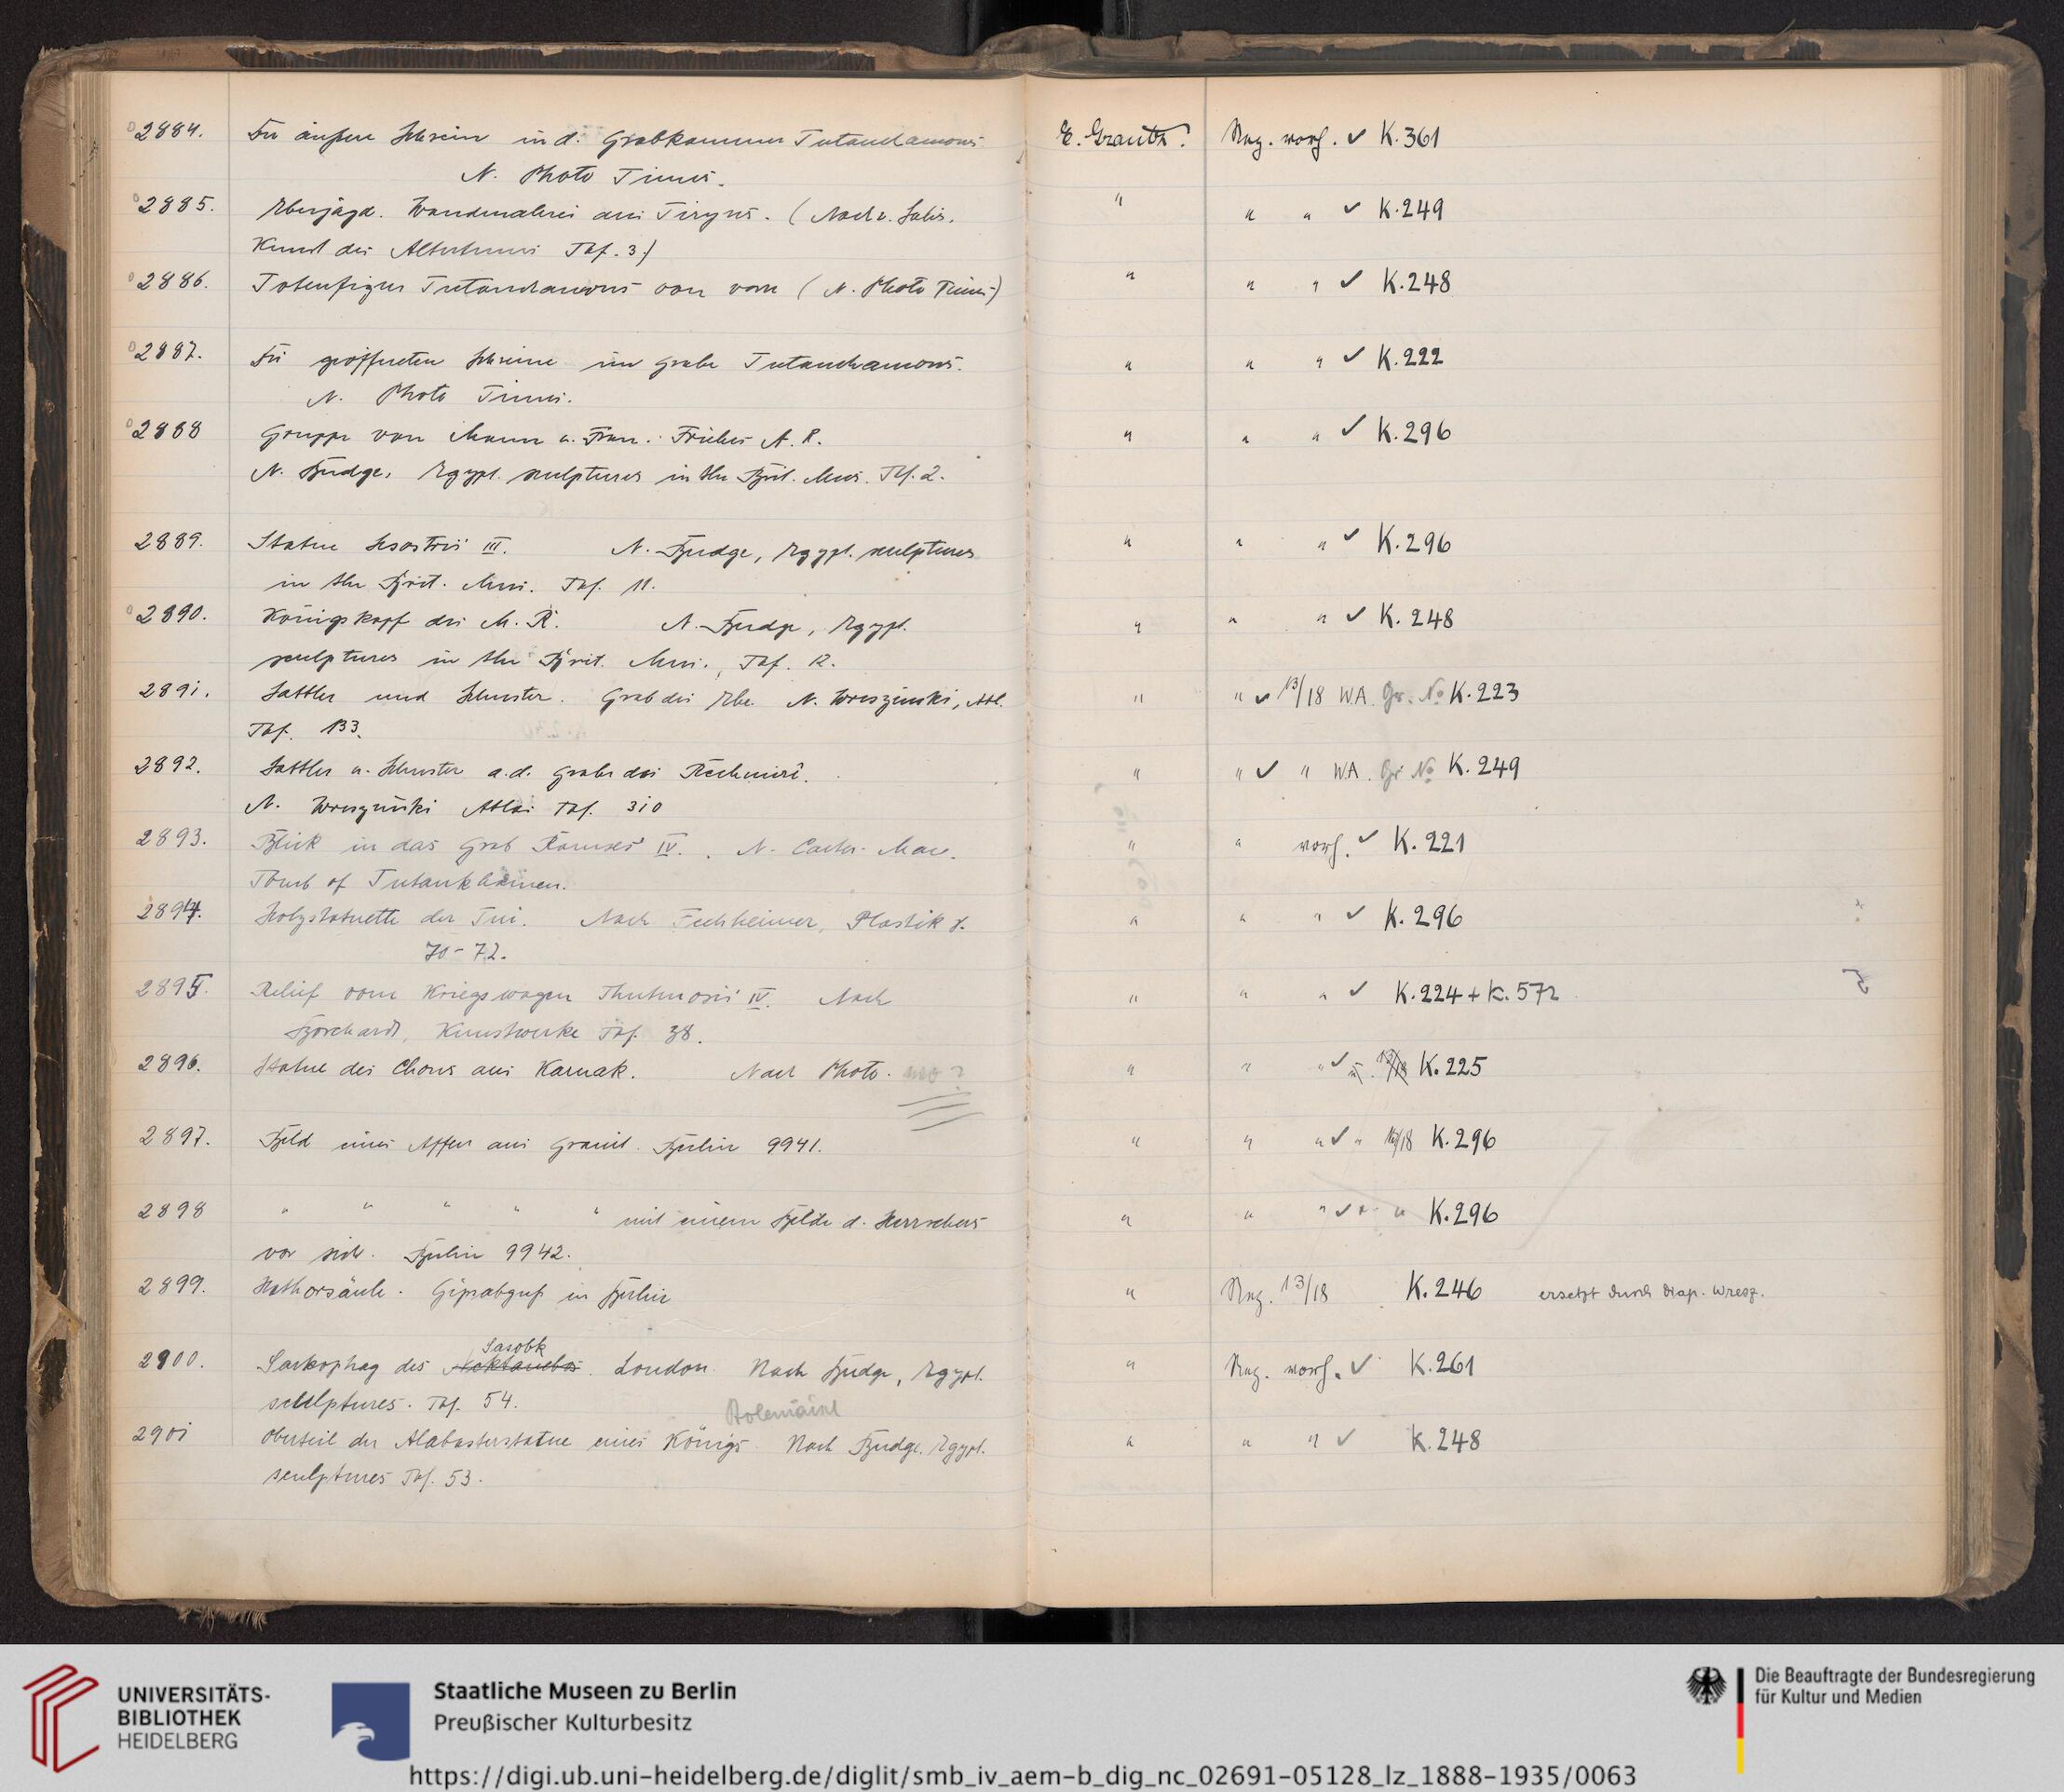 2884. Der äußere Schrein in d. Grabkammer Tutanchamons E. Grantz. Neg. vorh. ✓ K.361
N. Photo Times.
2885. Eberjagd. Wandmalerei aus Tiryns. (Nach v. Salis, " " " ✓ K.249
Kunst des Altertums Taf. 3.)
2886. Totenfigur Tutanchamons von vorn (N. Photo Times) " " " ✓ K.248
2887. Die geöffneten Schreine im Grabe Tutanchamons. " " " ✓ K.222
N. Photo Times.
2888 Gruppe von Mann u. Frau. Frühes A. R. " " " ✓ K.296
N. Budge, Egypt. sculptures in the Brit. Mus. Tf. 2.
2889. Statue Sesostris III. N. Budge, Egypt. sculptures " " " ✓ K.296
in the Brit. Mus. Taf. 11.
2890. Königskopf des M. R. N. Budge, Egypt. " " " ✓ K. 248
sculptures in the Brit. Mus., Taf. 12.
2891. Sattler und Schuster. Grab des Ebe. N. Wreszinski, Atl. " " ✓ 13/18 W.A. Gr. No K.223
Taf. 133.
2892. Sattler u. Schuster a. d. Grabe des Rechmirê. " " ✓ " W.A. Gr No K. 249
N. Wreszinski Atlas Taf. 310
2893. Blick in das Grab Ramses IV. N. Carter-Mace. " " vorh. ✓ K. 221
Tomb of Tutankhamen.
2894. Holzstatuette der Tui. Nach Fechheimer, Plastik S. " " " ✓ K. 296
70-72.
2895. Relief vom Kriegswagen Thutmosis IV. Nach " " " ✓ K.224 + K. 572
Borchardt, Kunstwerke Taf. 38.
2896. Statue des Chons aus Karnak. Nach Photo. wo? " " " ✓ K.225
2897. Bild eines Affen aus Granit. Berlin 9941. " " " ✓ " 13/18 K.296
2898 " " " " " mit einem Bilde d. Herrschers " " " ✓ " " K.296
vor sich. Berlin 9942.
2899. Hathorsäule. Gipsabguß in Berlin " Neg. 13/18 K.246 ersetzt durch Diap. Wresz.
Sasobk
2900. Sarkophag des Nektanebos. London. Nach Budge, Egypt. " Neg. vorh. ✓ K.261
sculptures. Taf. 54.
Ptolemäisch
2901 Oberteil der Alabasterstatue eines Königs. Nach Budge, Egypt. " " " ✓ K.248
sculptures Taf. 53.
UNIVERSITÄTS-
BIBLIOTHEK
HEIDELBERG
Staatliche Museen zu Berlin
Preußischer Kulturbesitz
Die Beauftragte der Bundesregierung
für Kultur und Medien
https://digi.ub.uni-heidelberg.de/diglit/smb_iv_aem-b_dig_nc_02691-05128_lz_1888-1935/0063